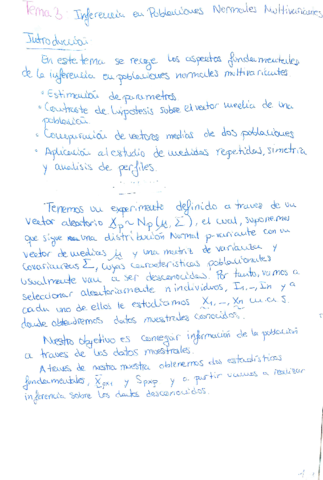 Tema 3: Inferencia en Poblaciones Normales Multivariantes
Introducción:
En este tema se recoge los aspectos fundamentales
de la inferencia en poblaciones normales multivariantes
• Estimación de parametros
• Contraste de hipotesis sobre el vector media de una
población
• Comparación de vectores medias de dos poblaciones
• Aplicación al estudio de medidas repetidas, simetría
y analisis de perfiles.
Tenemos un experimento definido a traves de un
vector aleatorio Xp ~ Np(μ, Σ), el cual, suponemos
que sigue una distribución Normal p-variante con un
vector de medias μ y una matriz de varianzas y
covarianzas Σ, cuyas caracteristicas poblacionales
usualmente van a ser desconocidas. Por tanto, vamos a
seleccionar aleatoriamente n individuos, I1,..., In y a
cada uno de ellos le estudiamos X1, ..., Xn m.a.s.
donde obtendremos datos muestrales conocidos.
Nuestro objetivo es conseguir información de la población
a traves de los datos muestrales.
A traves de nuestra muestra obtenemos dos estadísticos
fundamentales, X̄px1 y Spxp y a partir vamos a realizar
inferencia sobre los datos desconocidos.